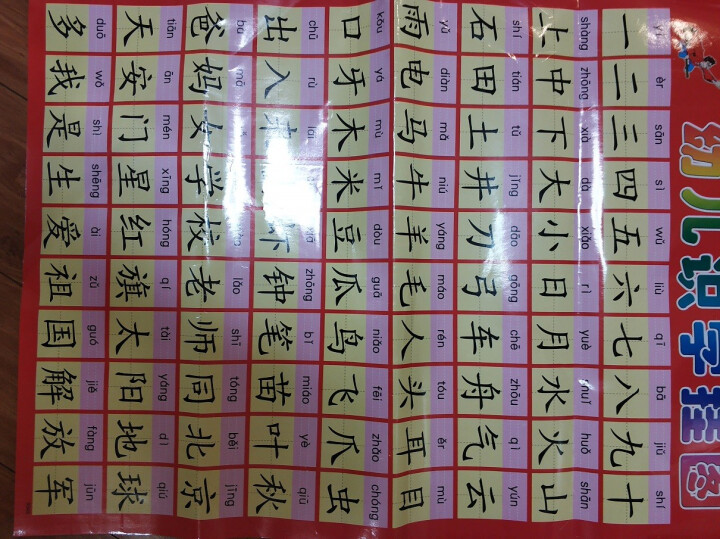 幼儿识字挂图
yī èr sān sì wǔ liù qī bā jiǔ shí
一 二 三 四 五 六 七 八 九 十
shàng zhōng xià dà xiǎo rì yuè shuǐ huǒ shān
上 中 下 大 小 日 月 水 火 山
shí tián tǔ jǐng dāo gōng chē zhōu qì yún
石 田 土 井 刀 弓 车 舟 气 云
yǔ diàn mǎ niú yáng máo rén tóu ěr mù
雨 电 马 牛 羊 毛 人 头 耳 目
kǒu yá mù mǐ dòu guā niǎo fēi zhǎo chóng
口 牙 木 米 豆 瓜 鸟 飞 爪 虫
chū rù lái xiā zhōng bǐ miáo yè qiū
出 入 来 虾 钟 笔 苗 叶 秋
bà mā lǎo shī tóng běi jīng
爸 妈 女 学 校 老 师 同 北 京
tiān ān mén xīng hóng qí tài yáng dì qiú
天 安 门 星 红 旗 太 阳 地 球
duō wǒ shì shēng ài zǔ guó jiě fàng jūn
多 我 是 生 爱 祖 国 解 放 军